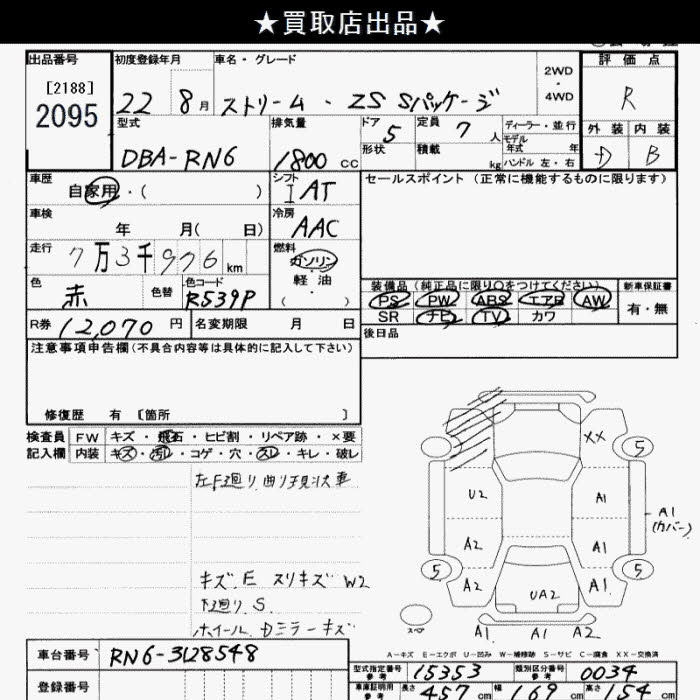 ★買取店出品★
出品番号 初度登録年月 車名・グレード 2WD・4WD 評価点
[2188]
2095
22 8月 ストリーム・ZS Sパッケージ R
型式 排気量 ドア 5 定員 7人 ディーラー・並行 外装 内装
DBA-RN6 1800cc 形状 積載 kg モデル年式 年 ハンドル 左・右 D B
車歴 シフト セールスポイント (正常に機能するものに限ります)
自家用・( ) I AT
車検 冷房
年 月( 日) AAC
走行 燃料
7万3千926km ガソリン
軽油
色 色替 色コード ( ) 装備品(純正品に限り○をつけてください) 新車保証書
赤 R539P PS PW ABS エアB AW 有・無
SR ナビ TV カワ
R券 12,070円 名変期限 月 日 後日品
注意事項申告欄(不具合内容等は具体的に記入して下さい)
修復歴 有 [箇所 ]
検査員 FW キズ・飛石・ヒビ割・リペア跡・×要
記入欄 内装 キズ・汚れ・コゲ・穴・スレ・キレ・破レ
左F廻り曲り現状車
キズ.E スリキズ W2
下廻り S.
ホイール.Dミラーキズ
XX 5
U2 A1
A1
(カバー)
A2 A1
5 A2 UA2 A1 5
スペア A1 A1 A2
A-キズ E-エクボ U-凹み W-補修跡 S-サビ C-腐食 XX-交換済
車台番号 RN6-3128548
型式指定番号 参考 15353 類別区分番号 参考 0034
登録番号
車庫証明用 参考 長さ 457cm 幅 169cm 高さ 154cm